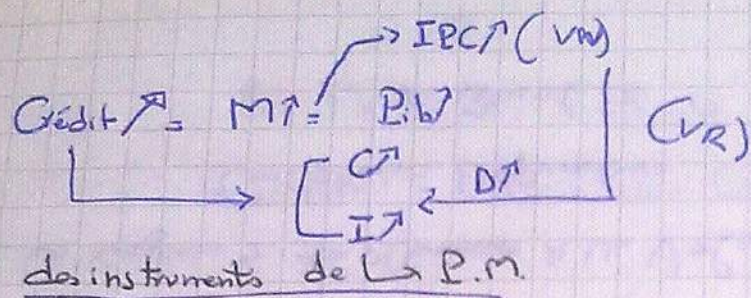 → IPC↗ (VN)
Crédit↗ = M↑ = P.ib↗
(VR)
→ C↗
I↗ ← D↗
des instruments de La P.M.